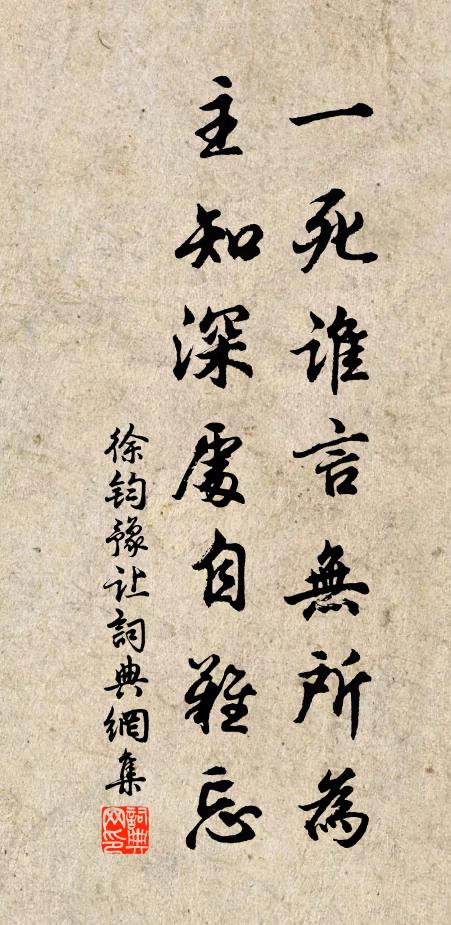 一死誰言無所為
主知深處自難忘
徐鈞豫让詞典網集
詞典网印